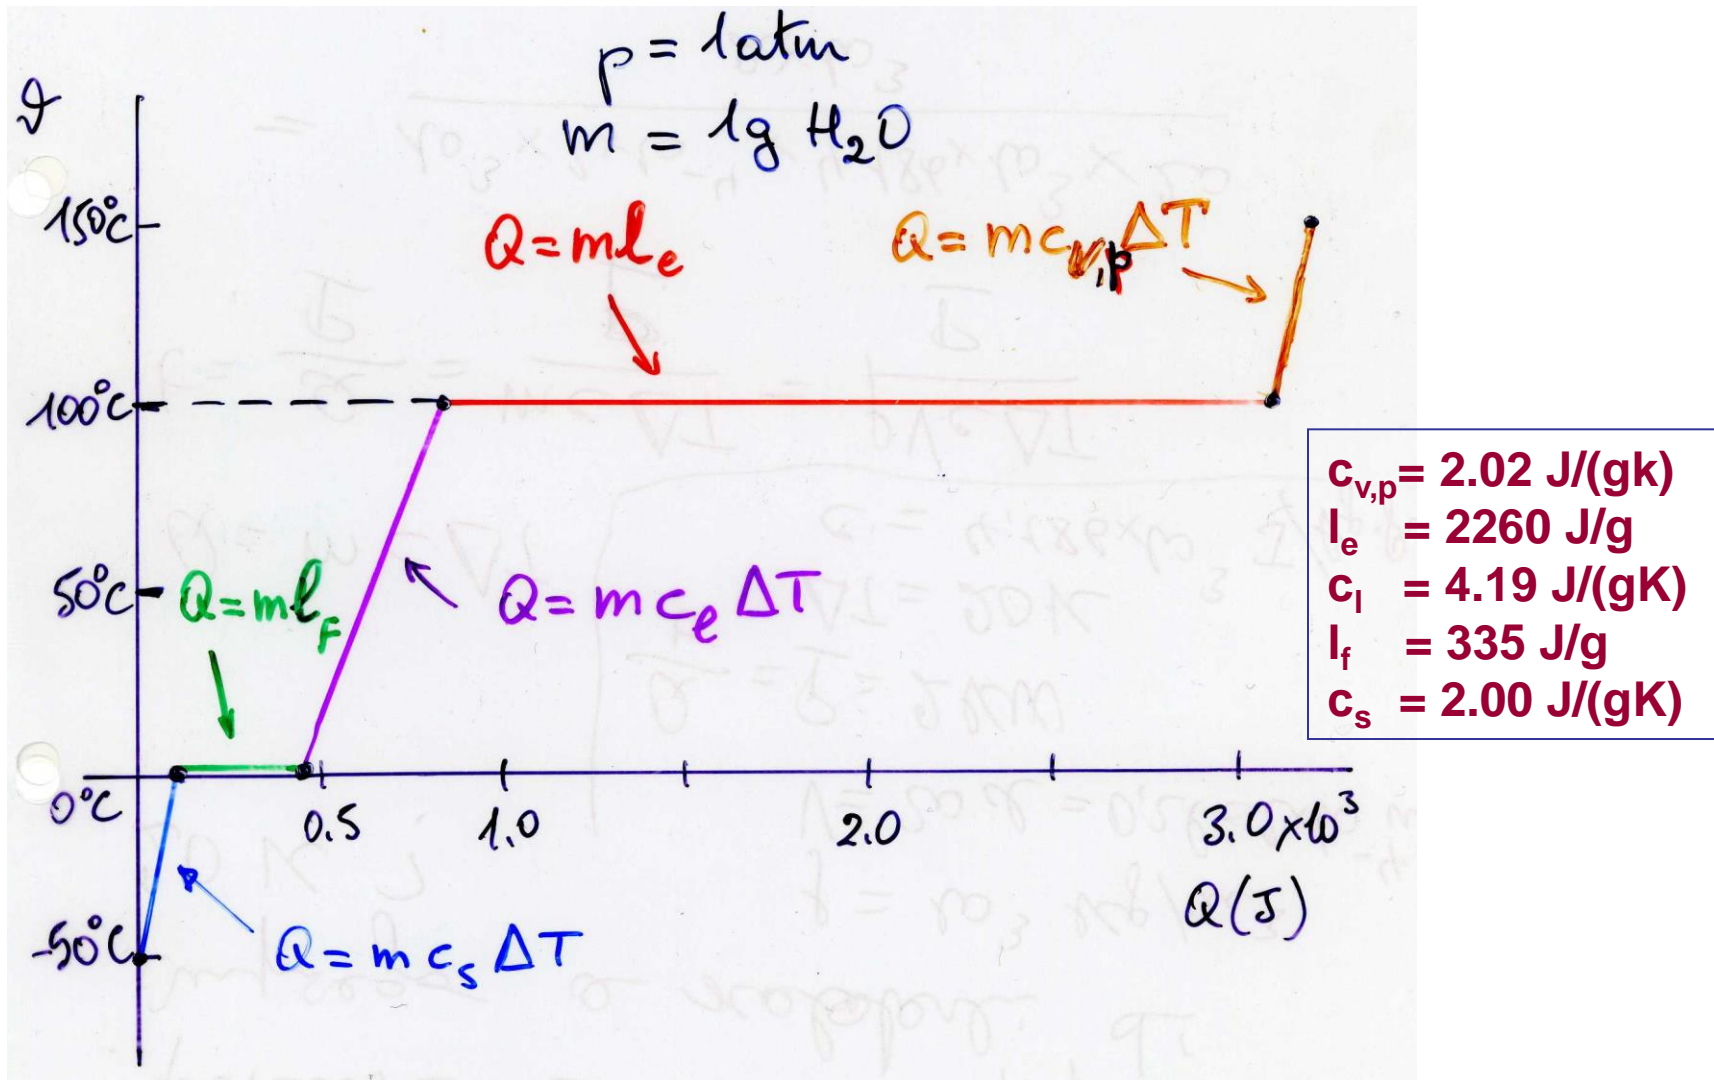 p = 1atm
m = 1g H₂O
ϑ
150°C
Q = mℓₑ
Q = mc_{v,p} ΔT
100°C
50°C
Q = mℓ_F
Q = mc_ℓ ΔT
0°C
0.5
1.0
2.0
3.0 x10³
Q(J)
-50°C
Q = mcₛ ΔT
c_{v,p} = 2.02 J/(gk)
l_e = 2260 J/g
c_l = 4.19 J/(gK)
l_f = 335 J/g
c_s = 2.00 J/(gK)